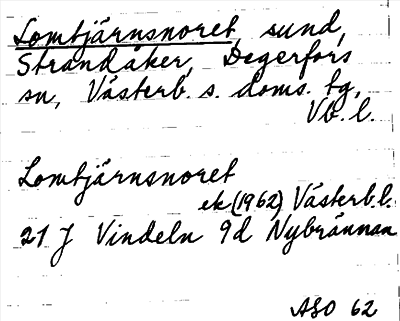 Lomtjärnsnoret, sund,
Strandåker, Degerfors
sn, Västerb. s. doms. tg,
Vb. l.
Lomtjärnsnoret
ek (1962) Västerb.l.
21 J Vindeln 9d Nybrännan
ASO 62